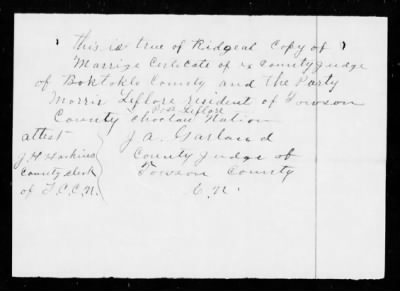 This is true of Ridgeal Copy of
Marrige Certicate of ex County judge
of Boktoklo County and the Party
Morris Leflore resident of Towson
Post Leflore
County Choctaw Nation
attest J. A. Garland
J. H. Hoskins County Judge of
County clerk Towson County
of T.C.C.N. C. N.